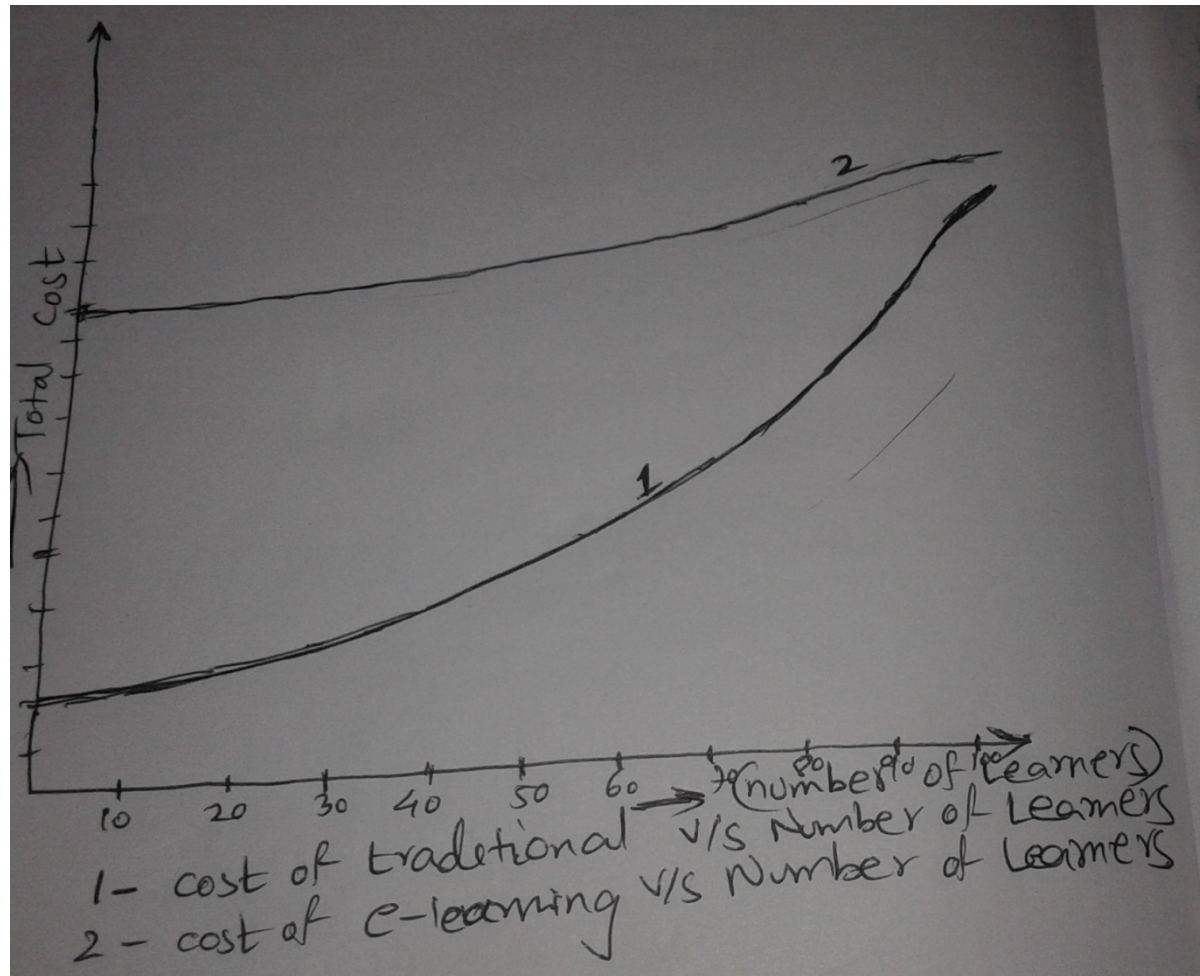 Total Cost
2
1
10 20 30 40 50 60 70 80 90 100
(number of Learners)
1- cost of traditional v/s Number of Learners
2 - cost of e-learning v/s Number of Learners